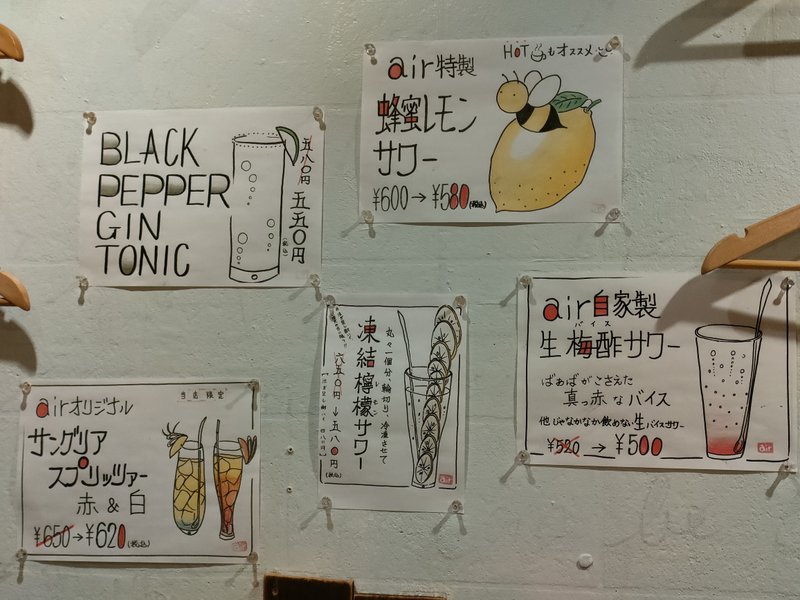 BLACK
PEPPER
GIN
TONIC
五八〇円
五五〇円
(税込)
HOTもオススメ
air特製
蜂蜜レモン
サワー
¥600→¥580(税込)
丸々一個分、輪切り、冷凍させて
凍結檸檬サワー
レモン
六五〇円→五八〇円
(税込)
air自家製
バイス
生梅酢サワー
ばぁばがこさえた
真っ赤なバイス
他じゃなかなか飲めない生バイスサワー
¥520→¥500
air
当店限定
airオリジナル
サングリア
スプリッツァー
赤&白
¥650→¥620(税込)